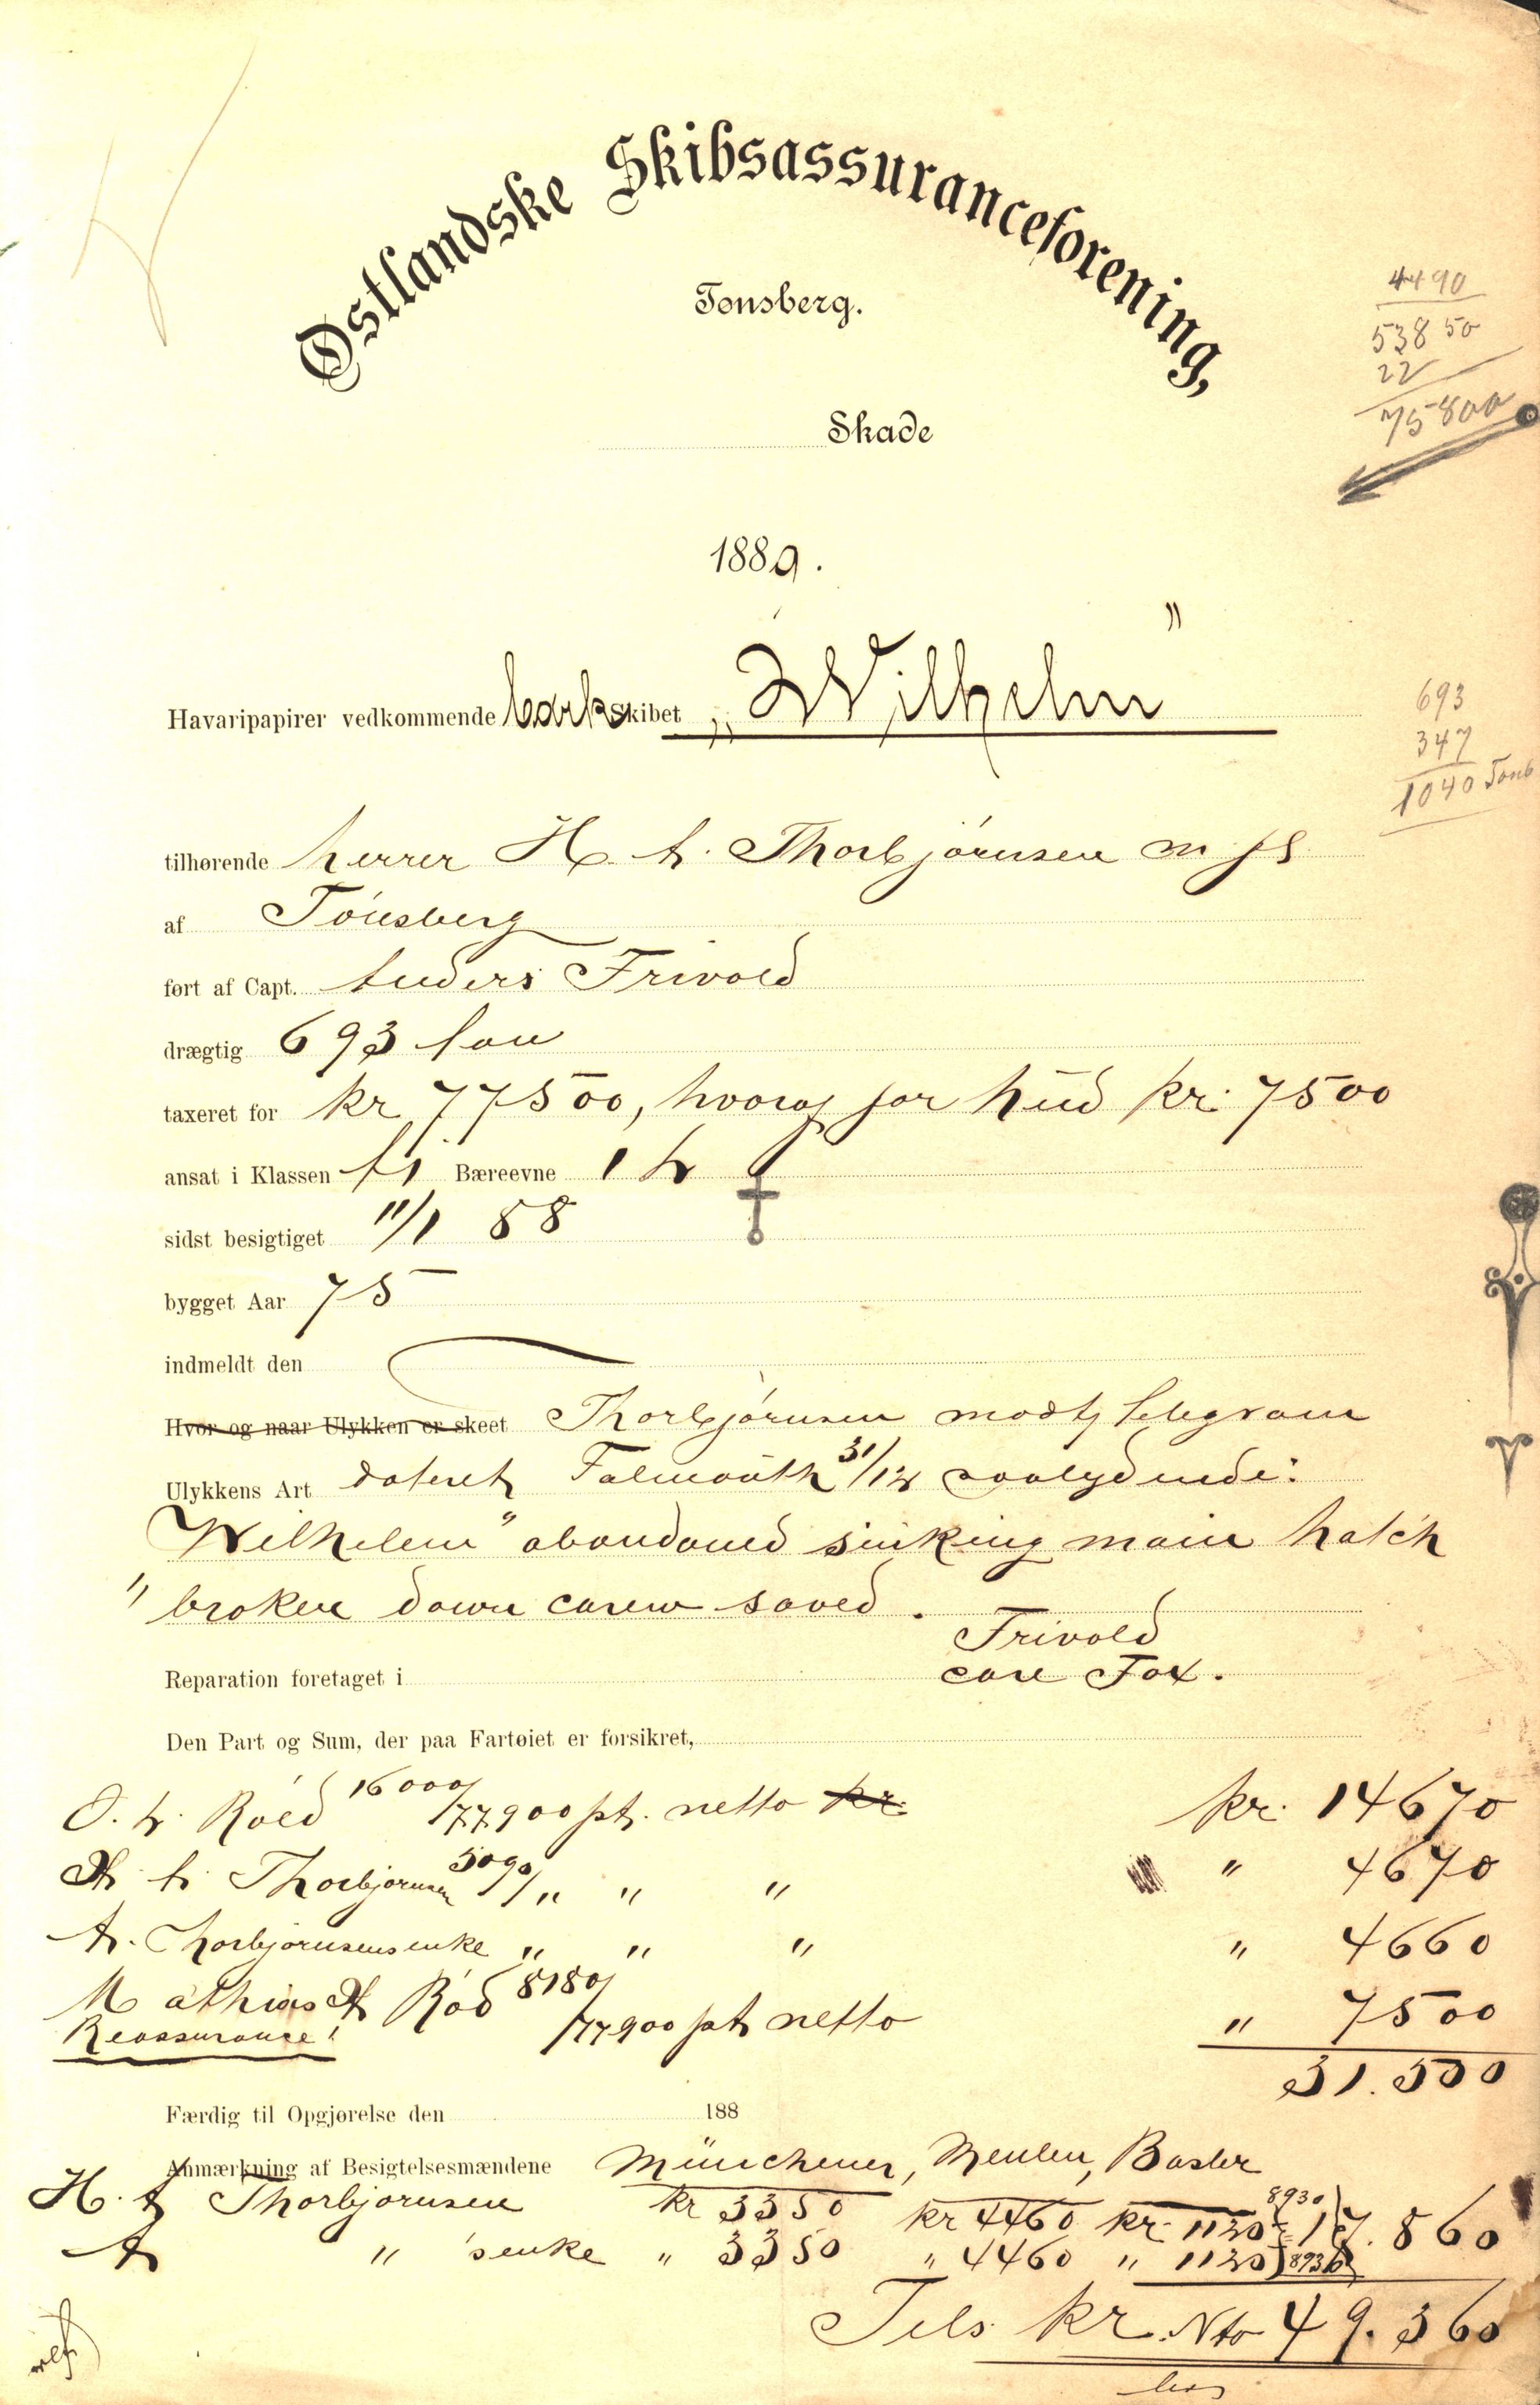 Østlandske Skibsassuranceforening,
Tønsberg.
4490
538 50
22
75800
Skade
1889.
Havaripapirer vedkommende bark skibet „Wilhelm"
693
347
1040 Tons
tilhørende herrer H. A. Thorbjørnsen m fl
af Tönsberg
ført af Capt. Anders Frivold
drægtig 693 ton
taxeret for kr 77500, hvoraf for hud kr. 7500
ansat i Klassen A1 Bæreevne 1 h
sidst besigtiget 11/1 88
bygget Aar 75
indmeldt den
Hvor og naar Ulykken er skeet Thorbjørnsen modt telegram
Ulykkens Art dateret Falmouth 31/12 saalydende:
Wilhelm" abandoned sinking main hatch
" broken down crew saved.
Frivold
Reparation foretaget i care Fox.
Den Part og Sum, der paa Fartøiet er forsikret,
O. A. Röed 16000/77900 pt. netto kr. kr. 14670
H. A. Thorbjørnsen 5090/" " " " 4670
A. Thorbjørnsens enke " " " " 4660
Mathias A Röd 8180/77900 pt netto " 7500
Reassurance! 31.500
Færdig til Opgjørelse den 188
Anmærkning af Besigtelsesmændene Münchener, Basler
H. A Thorbjørnsen kr 3350 kr 4460 kr. 1120 8930 17.860
A " s enke " 3350 " 4460 " 1120 8930
Tils kr. Nto 49.360